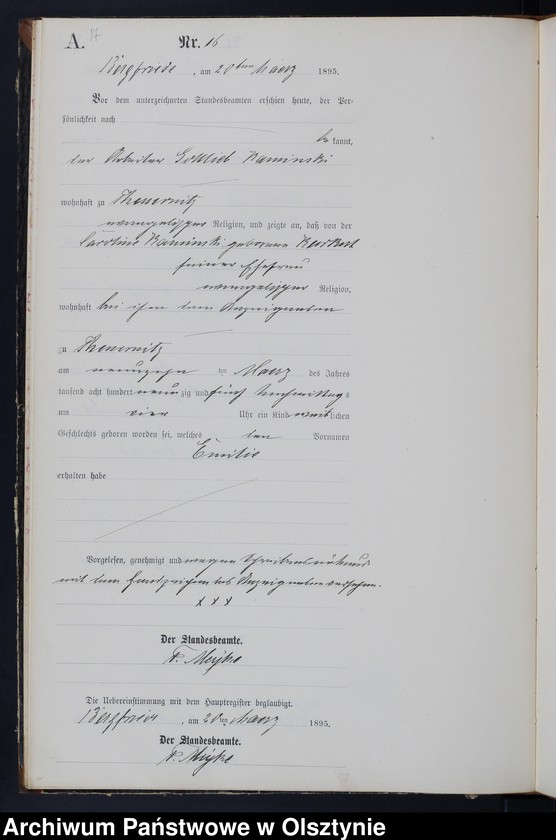 A. 17
Nr. 16
Bergfriede, am 20ten Maerz 1895.
Vor dem unterzeichneten Standesbeamten erschien heute, der Per-
sönlichkeit nach
be kannt,
der Arbeiter Gottlieb Kaminski
wohnhaft zu Theuernitz
evangelischer Religion, und zeigte an, daß von der
Caroline Kaminski geborene
seiner Ehefrau
evangelischer Religion,
wohnhaft bei ihm dem Anzeigenden
zu Theuernitz
am neunzehn ten Maerz des Jahres
tausend acht hundert neun zig und fünf Nachmittags
um vier Uhr ein Kind weiblichen
Geschlechts geboren worden sei, welches den Vornamen
Emilie
erhalten habe
Vorgelesen, genehmigt und wegen Schreibensunkunde
mit dem Handzeichen des Anzeigenden versehen.
x x x
Der Standesbeamte.
Die Uebereinstimmung mit dem Hauptregister beglaubigt.
Bergfriede, am 20ten Maerz 1895.
Der Standesbeamte.
Archiwum Państwowe w Olsztynie